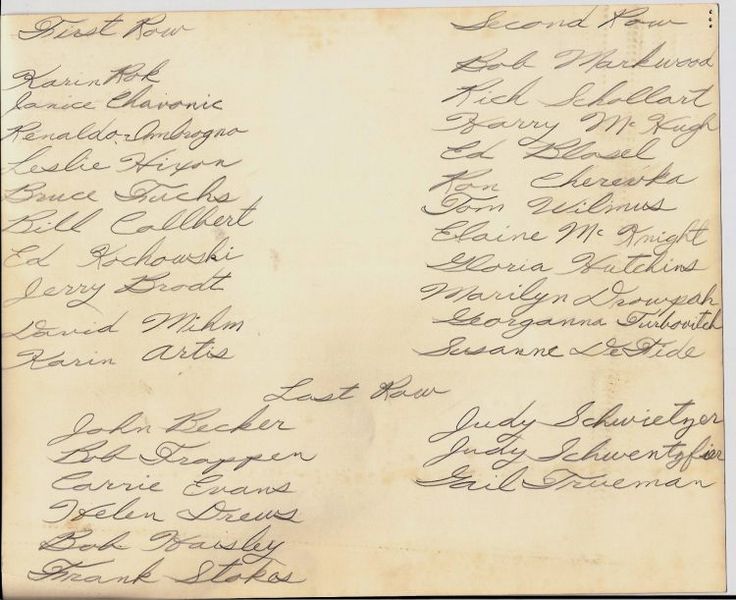 First Row
Karin Rok
Janice Chavonic
Renaldo Ambrogno
Leslie Hixon
Bruce Fuchs
Bill Callbert
Ed Kochowski
Jerry Brodt
David Mihm
Karin Artis
Second Row
Bob Markwood
Rich Schollart
Harry McHugh
Ed Blasel
Ron Cherewka
Tom Wilmus
Elaine McKnight
Gloria Hutchins
Marilyn Drowpah
Georganna Turbovitch
Susanne DeFide
Last Row
John Becker
Bob Trappen
Carrie Evans
Helen Drews
Bob Haisley
Frank Stokas
Judy Schwietzer
Judy Schwentzfier
Gail Trueman